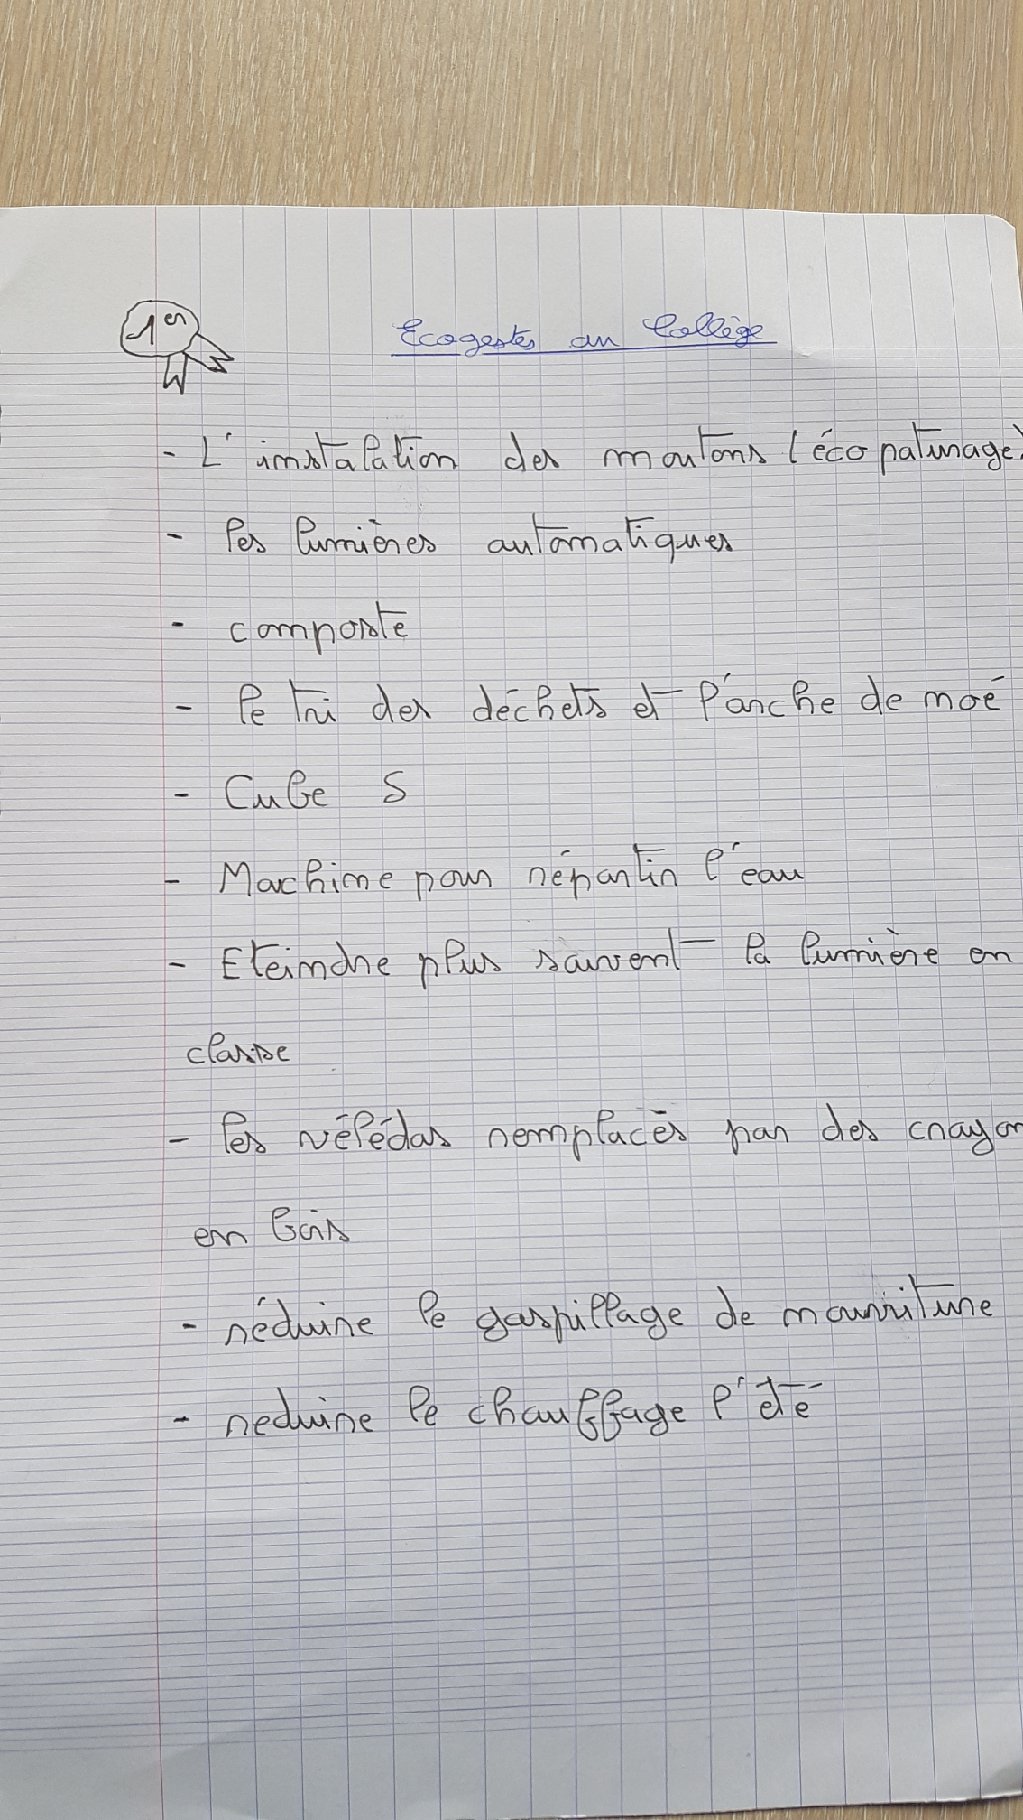 1er
Ecogestes au Collège
- L'instalation des moutons (écopaturage)
- les lumières automatiques
- composte
- le tri des déchets et l'arche de noé
- Cube S
- Machine pour répartir l'eau
- Eteindre plus souvent la lumière en
classe
- les vélédas remplacés par des crayon
en bois
- réduire le gaspillage de nourriture
- reduire le chauffage l'été